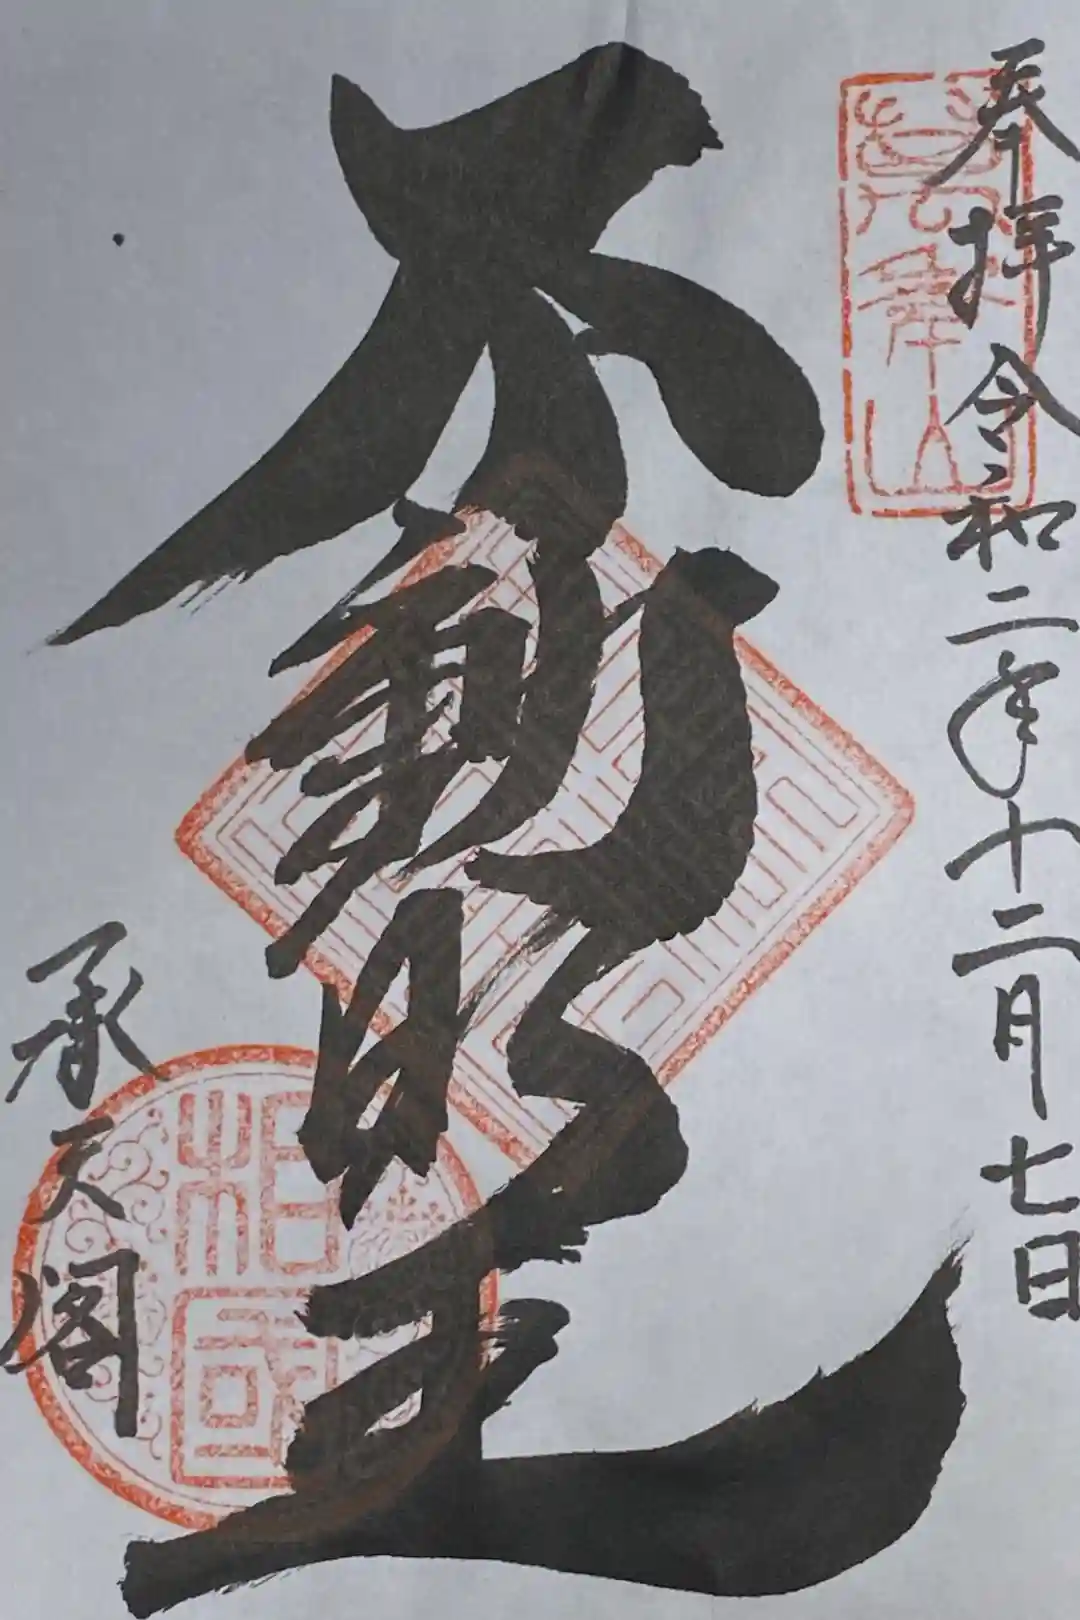 奉拝 令和二年十二月七日
萬年山
不動明王
承天閣
相國